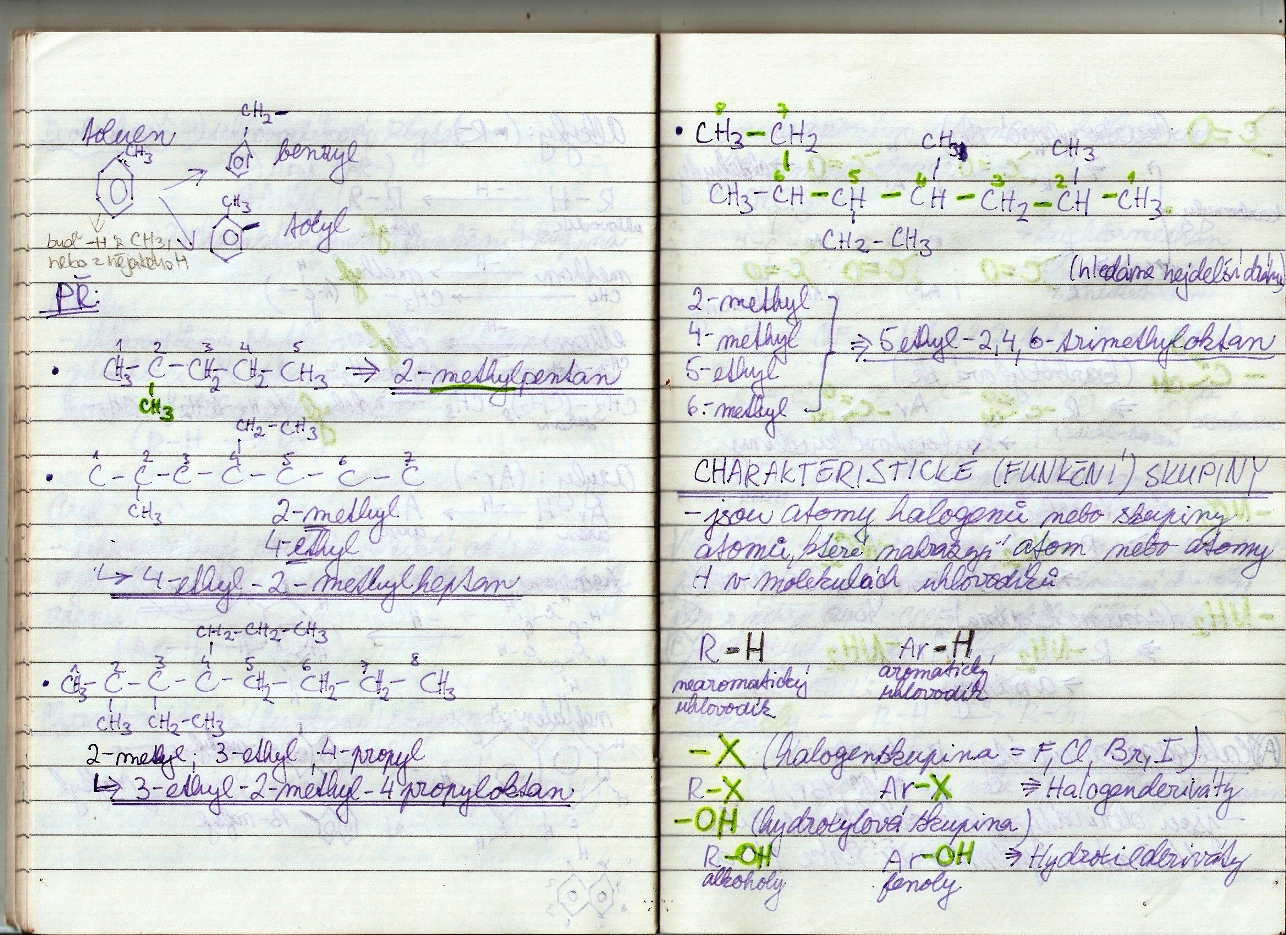 toluen
CH3
CH2–
benzyl
CH3
tolyl
buď -H z CH3,
nebo z nějakého H
PŘ:
1 2 3 4 5
• CH3 – C – CH2 – CH2 – CH3 ⇒ 2-methylpentan
CH3
CH2–CH3
1 2 3 4 5 6 7
• C – C – C – C – C – C – C
CH3
2-methyl
4-ethyl
↳ 4-ethyl-2-methylheptan
CH2–CH2–CH3
1 2 3 4 5 6 7 8
• CH3 – C – C – C – CH2 – CH2 – CH2 – CH3
CH3 CH2–CH3
2-metyl, 3-ethyl, 4-propyl
↳ 3-ethyl-2-methyl-4propyloktan
8 7
• CH3–CH2
CH3 CH3
6 5 4 3 2 1
CH3–CH–CH–CH–CH2–CH–CH3
CH2–CH3
(hledáme nejdelší
2-methyl
4-methyl
5-ethyl
6-methyl
⇒ 5ethyl-2,4,6-trimethyloktan
CHARAKTERISTICKÉ (FUNKČNÍ) SKUPINY
-jsou atomy halogenů nebo skupiny
atomů, které nahrazují atom nebo atomy
H v molekulách uhlovodíků
R–H Ar–H
nearomatický uhlovodík aromatický uhlovodík
–X (halogenskupina = F, Cl, Br, I)
R–X Ar–X ⇒ Halogenderiváty
–OH (hydroxylová skupina)
R–OH Ar–OH ⇒ Hydroxilderiváty
alkoholy fenoly